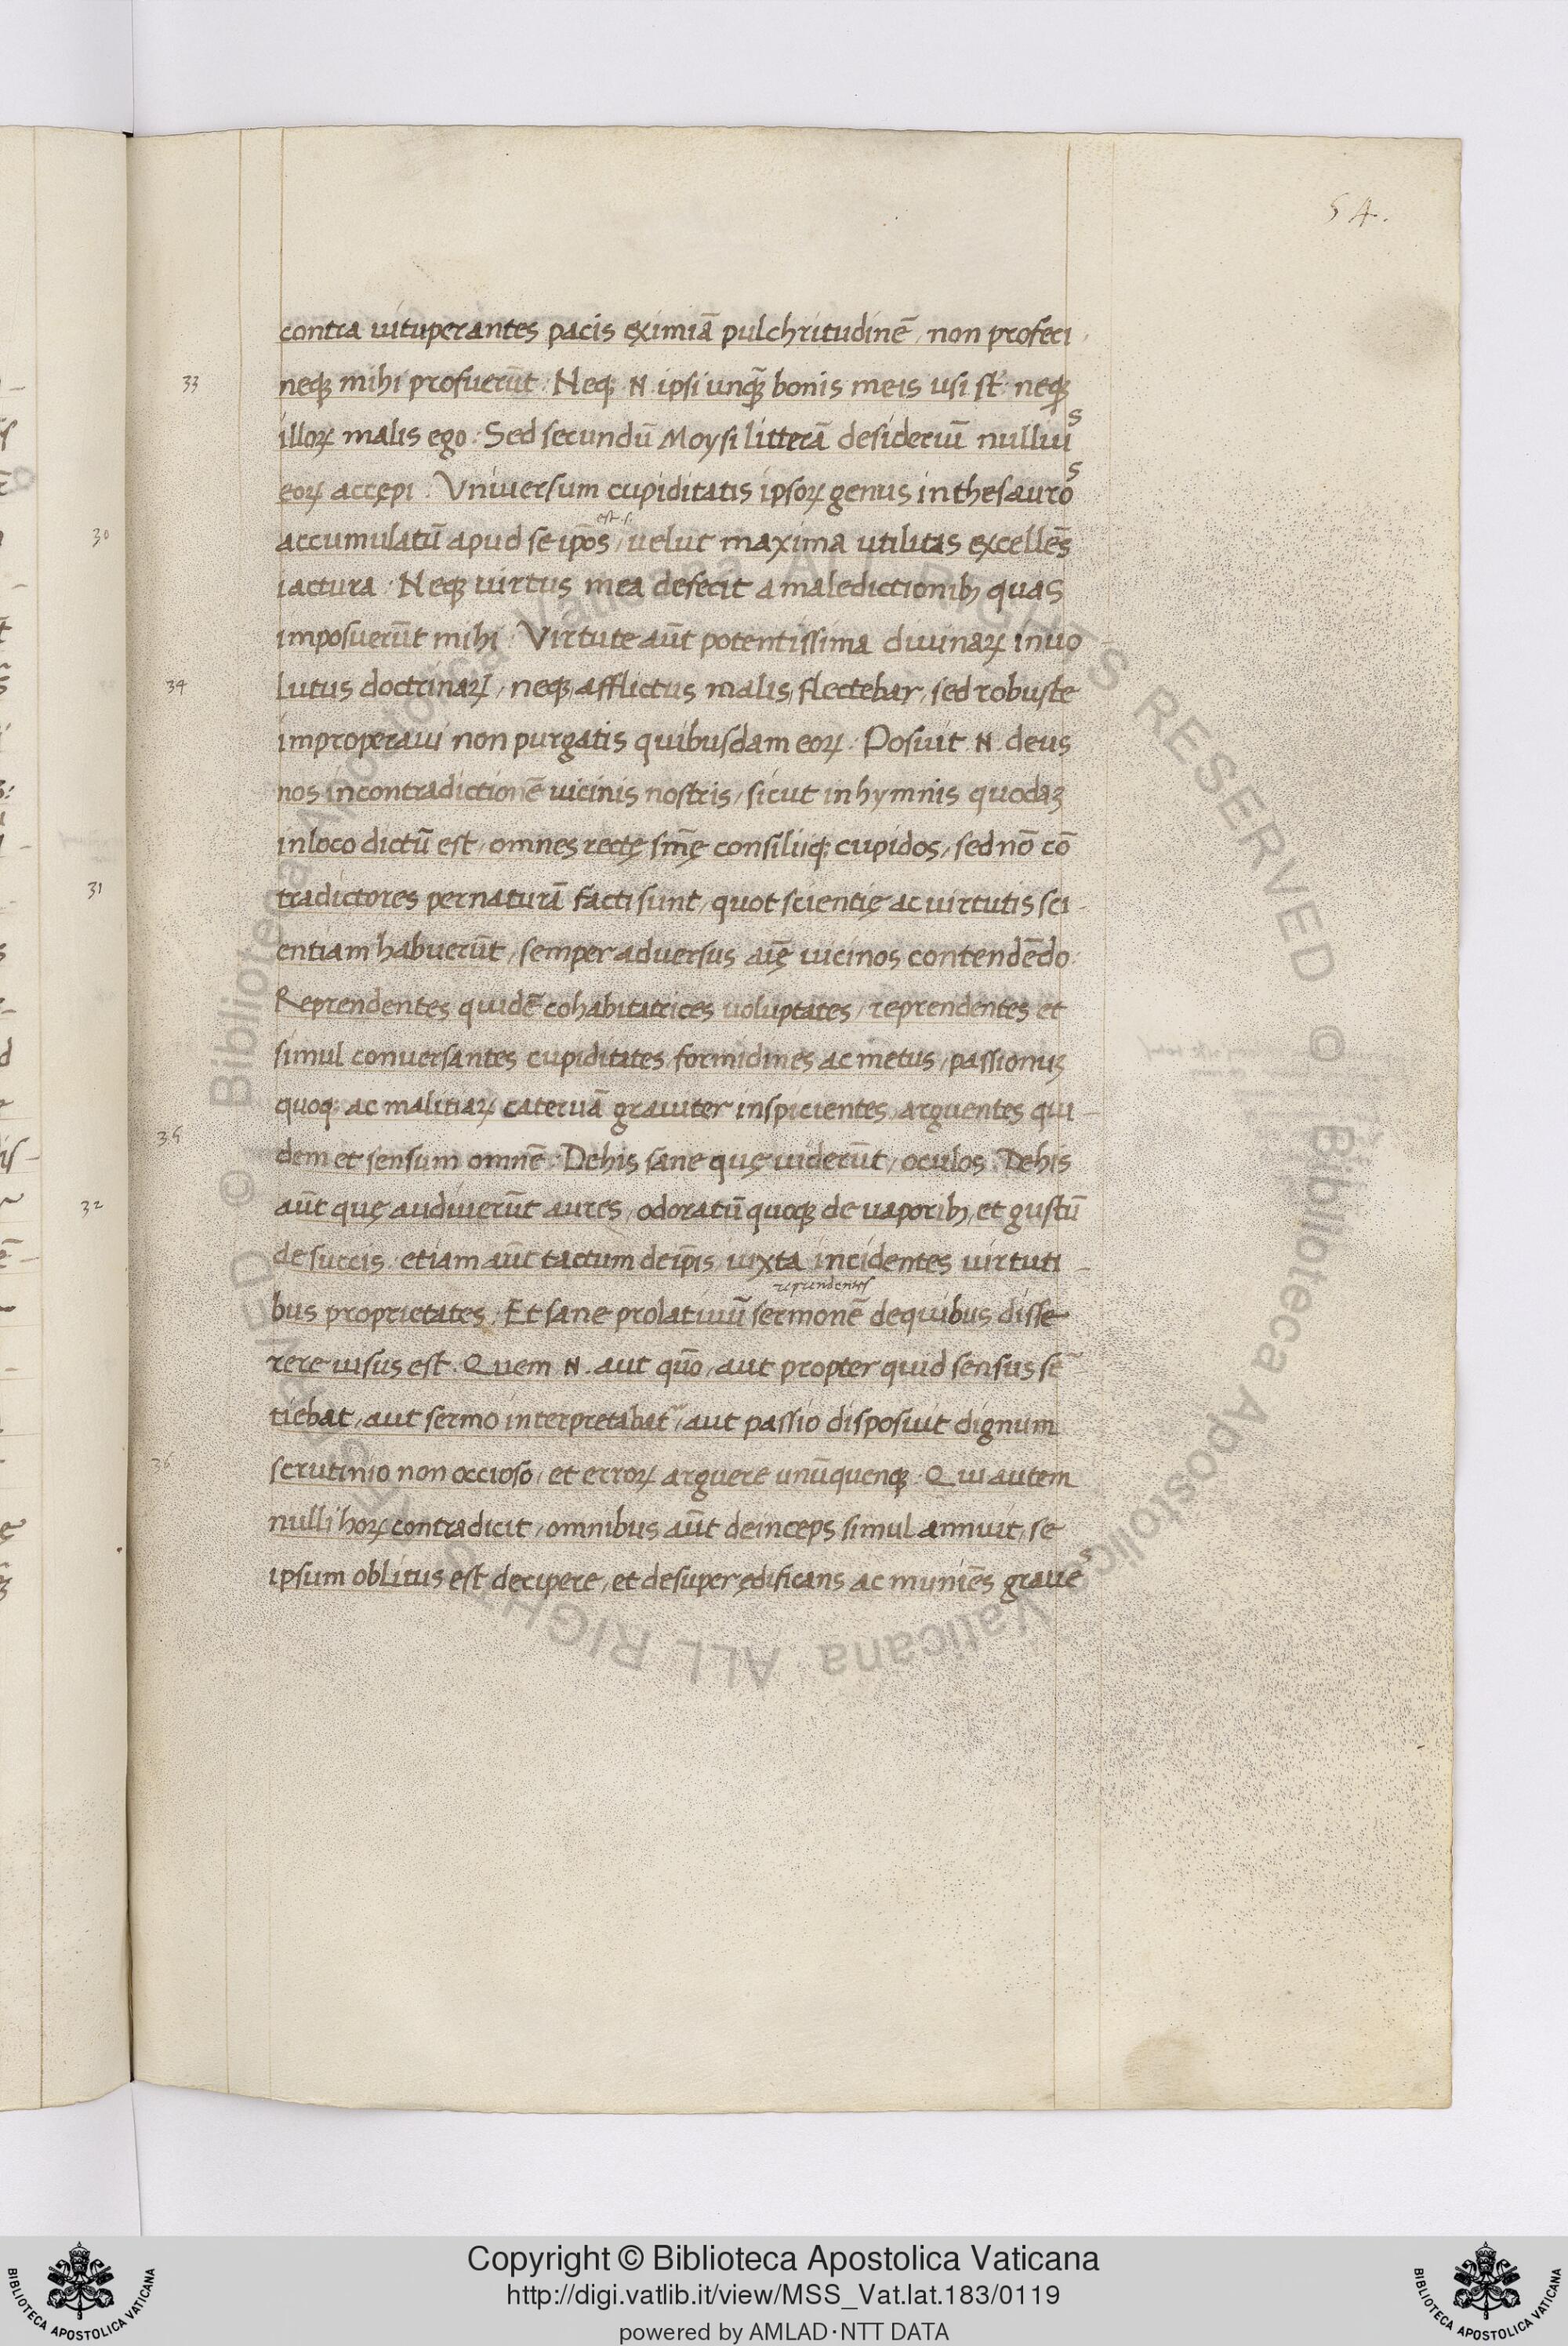 54.
contra uituperantes pacis eximiā pulchritudinē, non profeci
33
neq; mihi profuerūt: Neq; N. ipsi unq̄ bonis meis usi st̄: neq;
illoꝝ malis ego: Sed secundū Moysi litterā desideriū nullius
eoꝝ accępi. Vniuersum cupiditatis ipsoꝝ genus in thesauros
est s.
accumulatū apud se ip̄os, uelut maxima utilitas excellēs
iactura. Neq; uirtus mea defecit a maledictionib; quas
imposuerūt mihi. Virtute aūt potentissima diuinaꝝ inuo-
34
lutus doctrinaꝝ, neq; afflictus malis, flectebar, sed robuste
improperaui non purgatis quibusdam eoꝝ. Posuit N. deus
nos in contradictionē uicinis nostris, sicut in hymnis quodaꝫ
in loco dictū est, omnes rectę sm̄ę consiliiq; cupidos, sed nō cō
tradictores per naturā facti sunt, quot scientię ac uirtutis sci-
entiam habuerūt, semper aduersus aīę uicinos contendēdo:
Reprendentes quidē cohabitatrices uoluptates, reprendentes et
simul conuersantes cupiditates formidines ac metus, passionuꝫ
quoq; ac malitiaꝝ cateruā grauiter inspicientes, arguentes qui-
35
dem et sensum omnē: De his sane quę uiderūt, oculos. De his
aūt quę audiuerūt aures, odoratū quoq; de uaporib; et gustū
de succis. etiam aūt tactum de ip̄is iuxta incidentes uirtuti-
reprendentes
bus proprietates. Et sane prolatiuū sermonē de quibus disse-
rere uisus est. Quem N. aut quō, aut propter quid sensus sē
tiebat, aut sermo interpretabat᷑, aut passio disposuit dignum
36
scrutinio non occioso, et erroꝝ arguere unūquenq; Qui autem
nulli hoꝝ contradicit, omnibus aūt deinceps simul annuit, se
ipsum oblitus est decipere, et desuper ędificans ac muniēs graues
30
31
32
Copyright © Biblioteca Apostolica Vaticana
http://digi.vatlib.it/view/MSS_Vat.lat.183/0119
powered by AMLAD·NTT DATA
BIBLIOTECA APOSTOLICA VATICANA
BIBLIOTECA APOSTOLICA VATICANA
© Biblioteca Apostolica Vaticana ALL RIGHTS RESERVED © Biblioteca Apostolica Vaticana ALL RIGHTS RESERVED